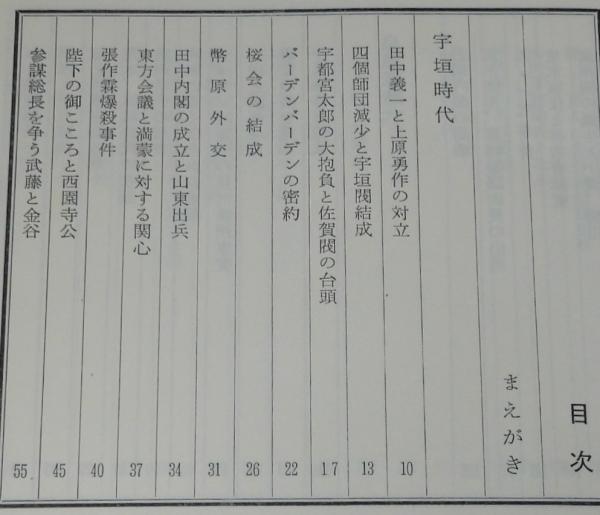 目次
まえがき
宇垣時代
田中義一と上原勇作の対立 10
四個師団減少と宇垣閥結成 13
宇都宮太郎の大抱負と佐賀閥の台頭 17
バーデンバーデンの密約 22
桜会の結成 26
幣原外交 31
田中内閣の成立と山東出兵 34
東方会議と満蒙に対する関心 37
張作霖爆殺事件 40
陛下の御こころと西園寺公 45
参謀総長を争う武藤と金谷 55